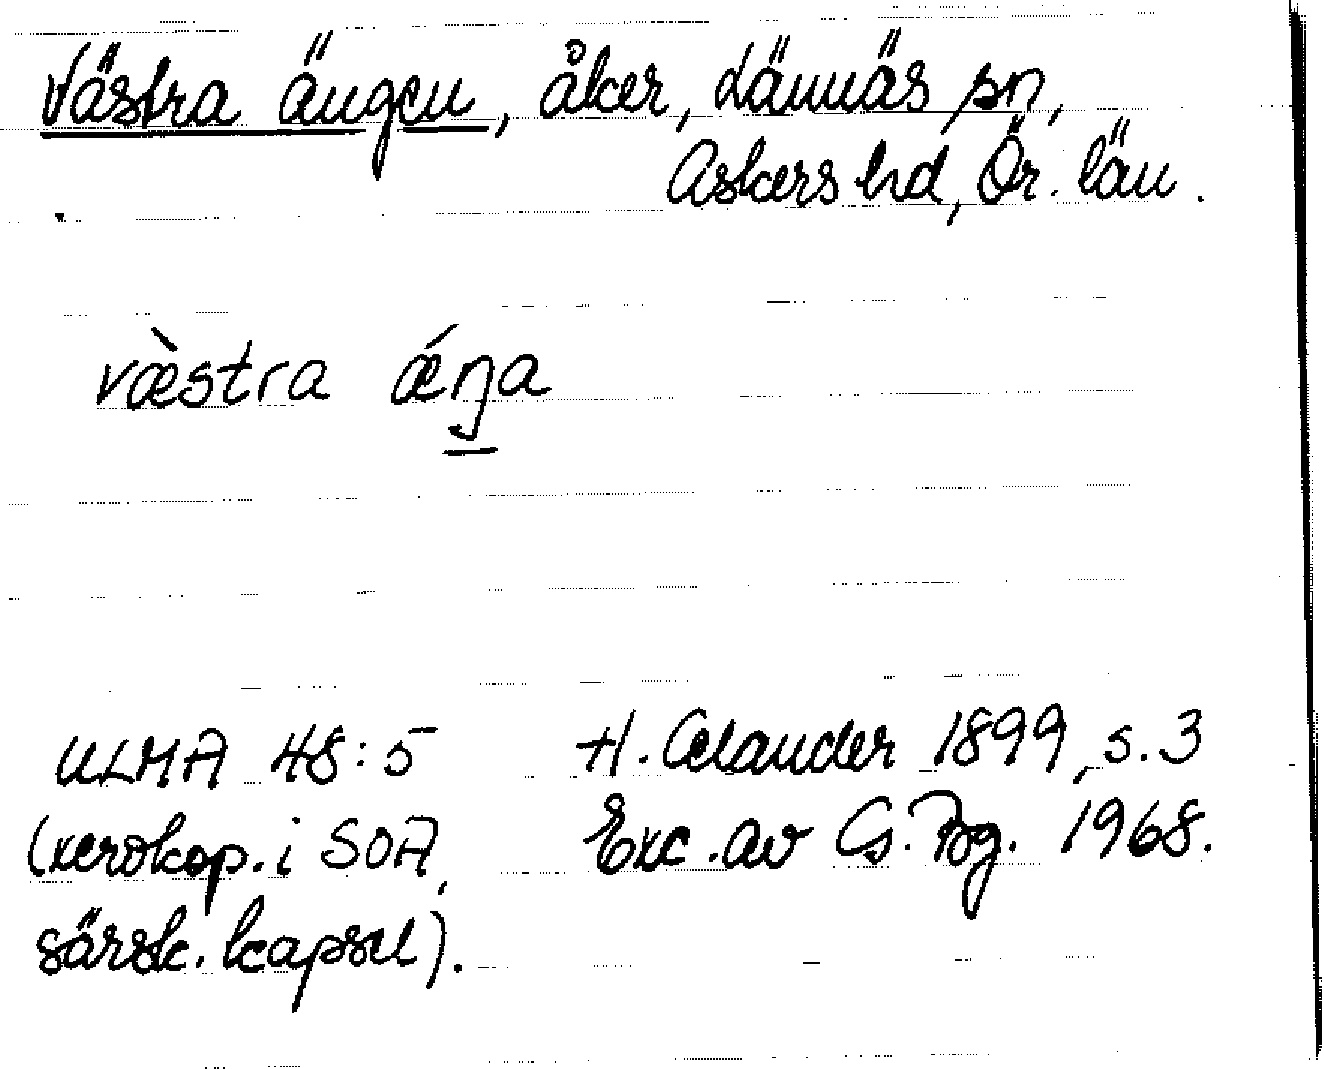 Västra ängen, åker, Lännäs sn,
Askers hd, Ör. län.
væ̀stra ǽŋa
ULMA 48:5 H. Celander 1899, s. 3
(xerokop. i SOA, Exc. av G. Pbg. 1968.
särsk. kapsel).